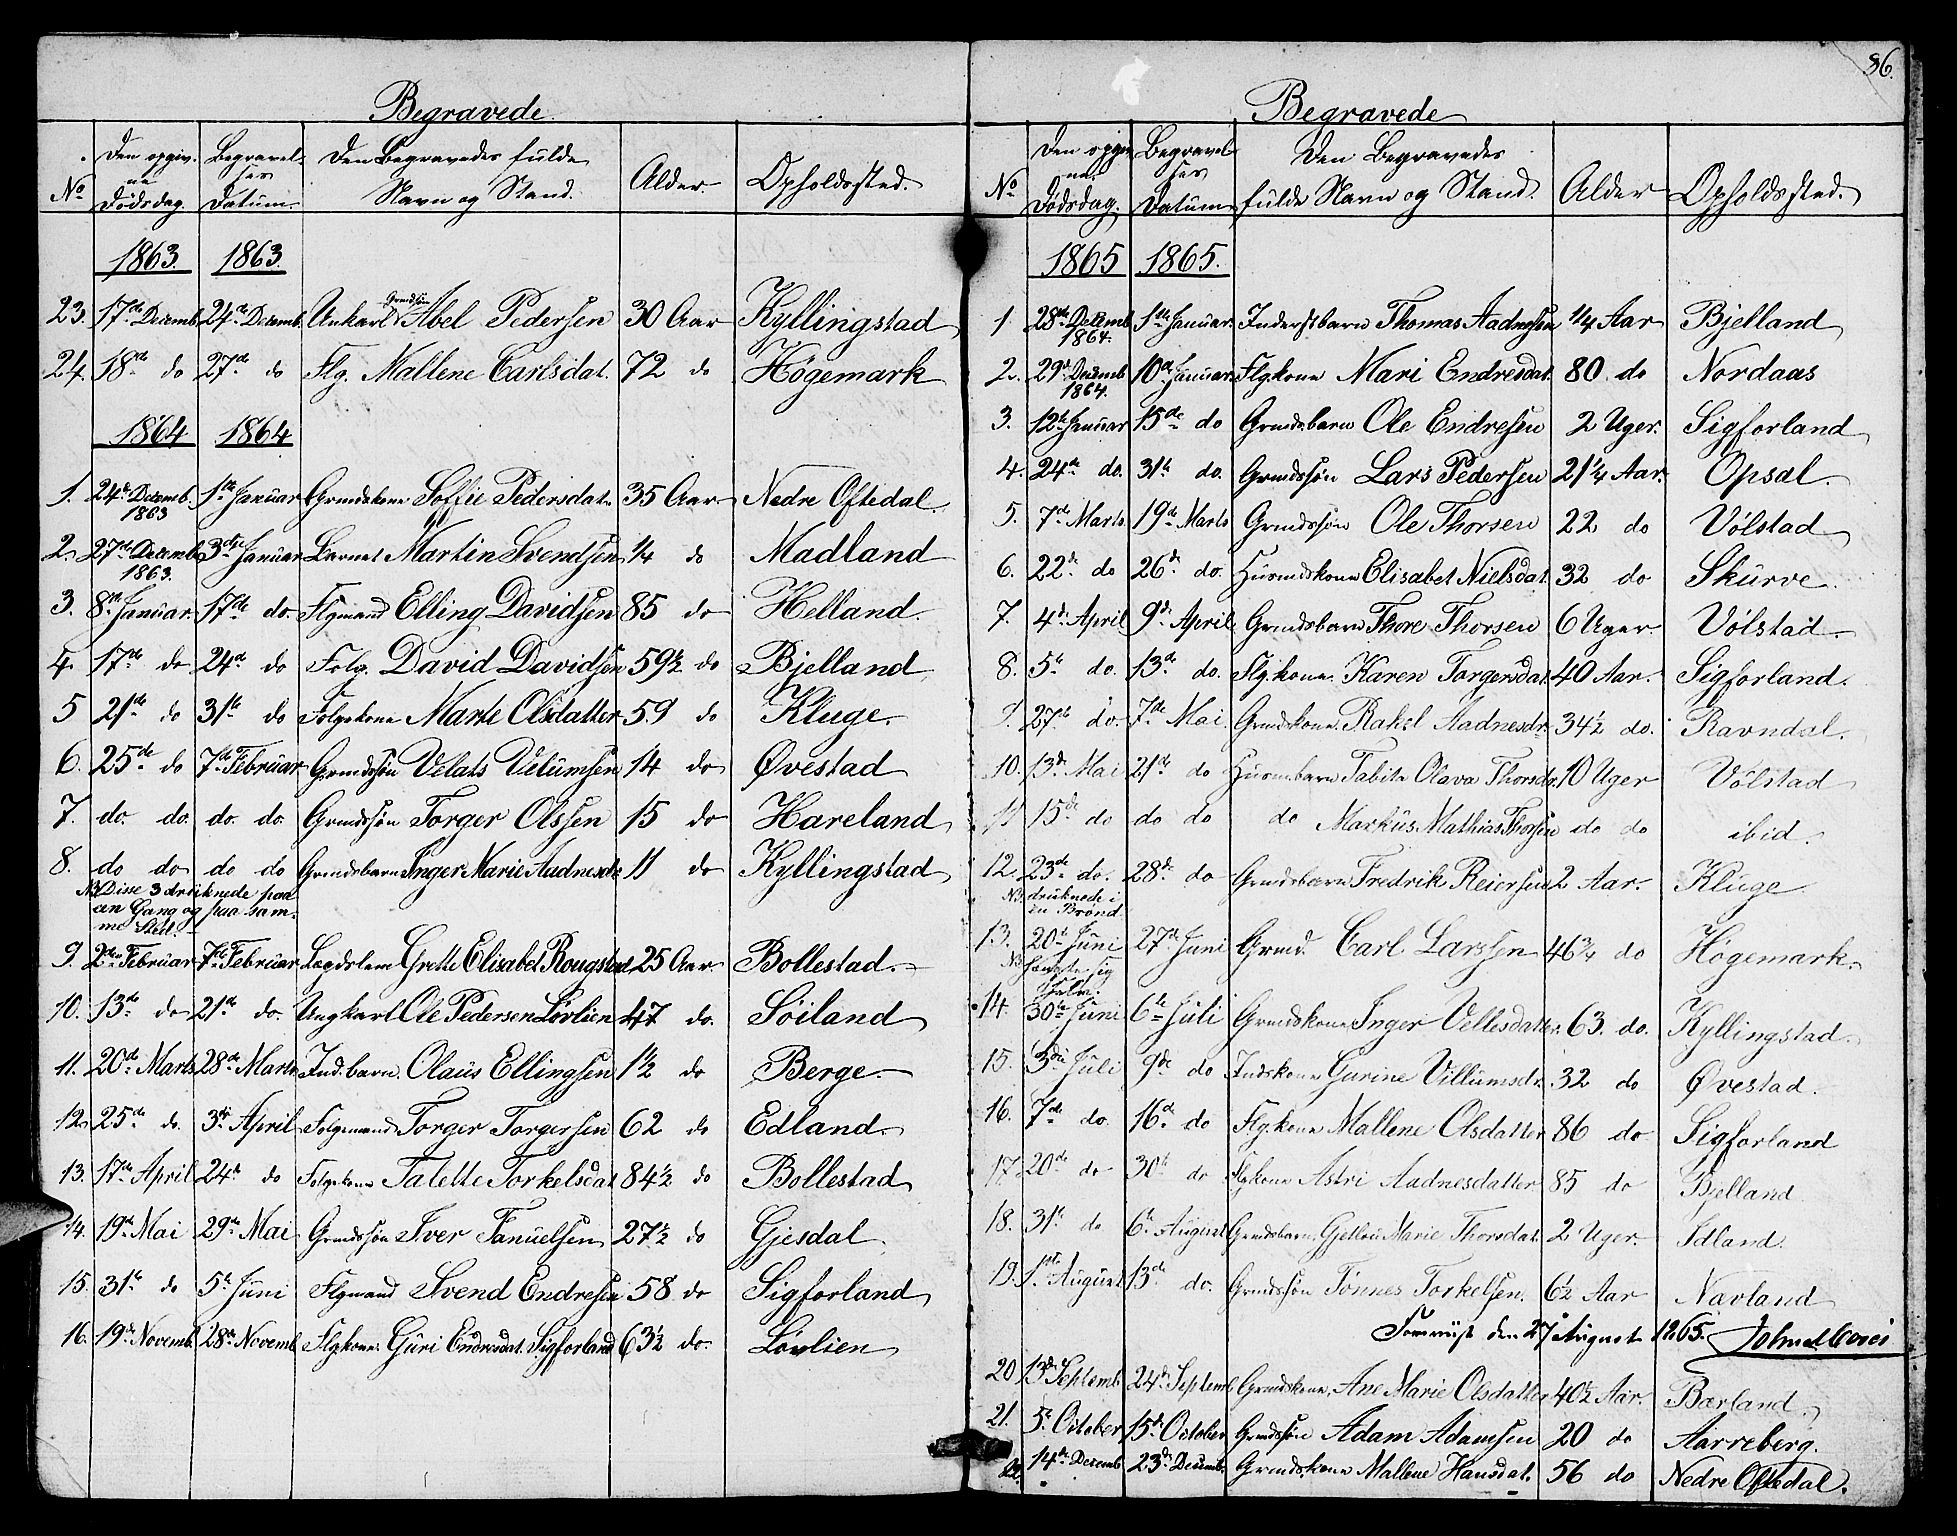 86.
Begravede
No Den opgivne Dødsdag. Begravelses Datum. Den Begravedes fulde Navn og Stand. Alder Opholdssted.
1863. 1863.
23. 17de Decemb. 24de Decemb. Unkarl Grmdsøn Abel Pedersen 30 Aar Kyllingstad
24. 18de do 27de do Flg. Mallene Carlsdat. 72 do Högemark
1864 1864
1. 24de Decemb. 1863 1ste Januar Grmdskone Soffie Pedersdat. 35 Aar Nedre Oftedal.
2. 27de Decemb. 1863. 3die Januar Barnet Martin Svendsen 1/4 do Madland
3. 8de Januar. 17de do. Flgmand Elling Davidsen 85 do Helland.
4. 17de do 24de do Folg. David Davidsen 59½ do Bjelland
5 21de do 31te do Folgekone Marte Olsdatter 59 do Kluge.
6. 25de do 7de Februar Grmdssön Velats Velumsen 14 do Øvestad
7. do. do. do. do. Grmdssön Torger Olssen 15 do Hareland
8. do do do do Grmdsbarn Inger Marie Aadnesdr 11 do Kyllingstad
NB Disse 3 druknede paa
een Gang og paa sam-
me Sted.
9. 2den Februar 7de Februar Lægdslem Grette Elisabet Rougstad 25 Aar. Bollestad.
10. 13de do 21de do. Ungkarl Ole Pedersen Lörlien 47 do. Söiland
11. 20de Marts 28de Marts Ind.barn. Olaus Ellingsen 1½ do Berge.
12. 25de do. 3die April Folgemand Torger Torgersen 62 do Edland.
13. 17de April 24de do Folgekone Talette Torkelsdat 84½ do Bollestad
14. 19de Mai 29de Mai Grmdssön Iver Tanuelsen 27½ do Gjesdal
15. 31te do 5te Juni Flgmand Svend Endresen 58 do Sigforland
16. 19de Novemb. 28de Novemb. Flgkone. Guri Endresdat. Sigforland 63½ do. Lörlien
Begravede
No Den opgivne Dødsdag. Begravelses Datum Den Begravedes fulde Navn og Stand. Alder Opholdssted.
1865 1865.
1 28de Decemb 1864. 1ste Januar. Inderstbarn Thomas Aadnesen 1/4 Aar Bjelland
2. 29de Decemb 1864. 10de Januar. Flgkone Mari Endresdat. 80 do Nordaas
3. 12te Januar 15de do Grmdsbarn Ole Endresen 2 Uger. Sigforland
4. 24de do. 31te do. Grmdssön Lars Pedersen 21¼ Aar. Opsal.
5. 7de Marts. 19de Marts Grmdssön Ole Thorsen 22 do Völstad
6. 22de do 26de do. Husmdskone Elisabet Nielsdat. 32 do Skurve.
7. 4de April 9de April Grmdsbarn Thore Thorsen 6 Uger Völstad
8. 5te do. 13de do. Flg.kone Karen Torgersdat. 40 Aar. Sigforland.
9. 27de do. 7de Mai Grmdskone Rakel Aadnesdr. 34½ do. Ravndal.
10. 13de Mai 21de do Husm.barn Tabita Olava Thorsdr. 10 Uger Völstad
11 15de do do do do Markus Mathias Thorsen do do ibid.
12. 23de do. 28de do Grmdsbarn Fredrik Reiersen 2 Aar. Kluge
NB. druknede i
en Brönd.
13. 20de Juni 27de Juni Grmd. Carl Larssen 46¾ do Högemark.
NB hængte sig
selv.
14. 30te Juni 6te Juli Grmdskone Inger Vellesdatter 63. do. Kyllingstad.
15. 3die Juli 9de do Indskone Gurine Villumsdr. 32 do Øvestad.
16. 7de do. 16de do Flg.kone Mallene Olsdatter 86 do Sigforland
17. 20de do 30te do Flgkone Astri Aadnesdatter 85 do Bjelland
18. 31te do 6te August Grmdsbarn. Gjellou Marie Thorsdat. 2 Uger. Idland.
19. 1ste August 13de do. Grmdssön Tönnes Torkelsen. 6½ Aar Nævland
Forevist den 27 August 1865.
20 13de Septemb. 24de Septemb Grmdskone, Ane Marie Olsdatter 40½ Aar. Bærland.
21. 5te October 15de October. Grmdssön Adam Adamsen 20 do Aarreberg.
22. 14de Decemb 23de Decemb. Grmdskone Mallene Hansdat. 56 do Nedre Oftedal.